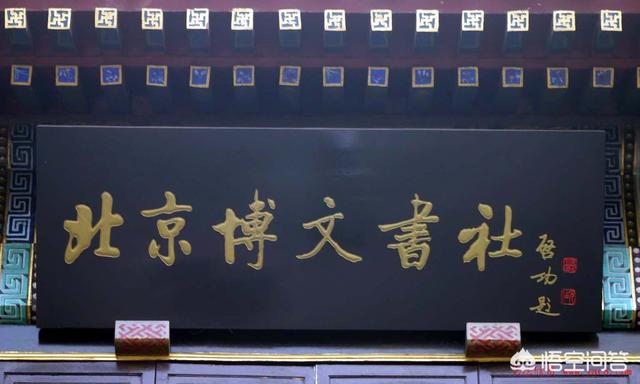 北京博文書社
啟功題
悟空问答